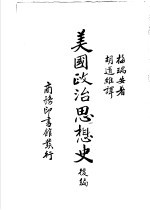 梅瑞安著
胡道維譯
美國政治思想史
後編
商務印書館發行